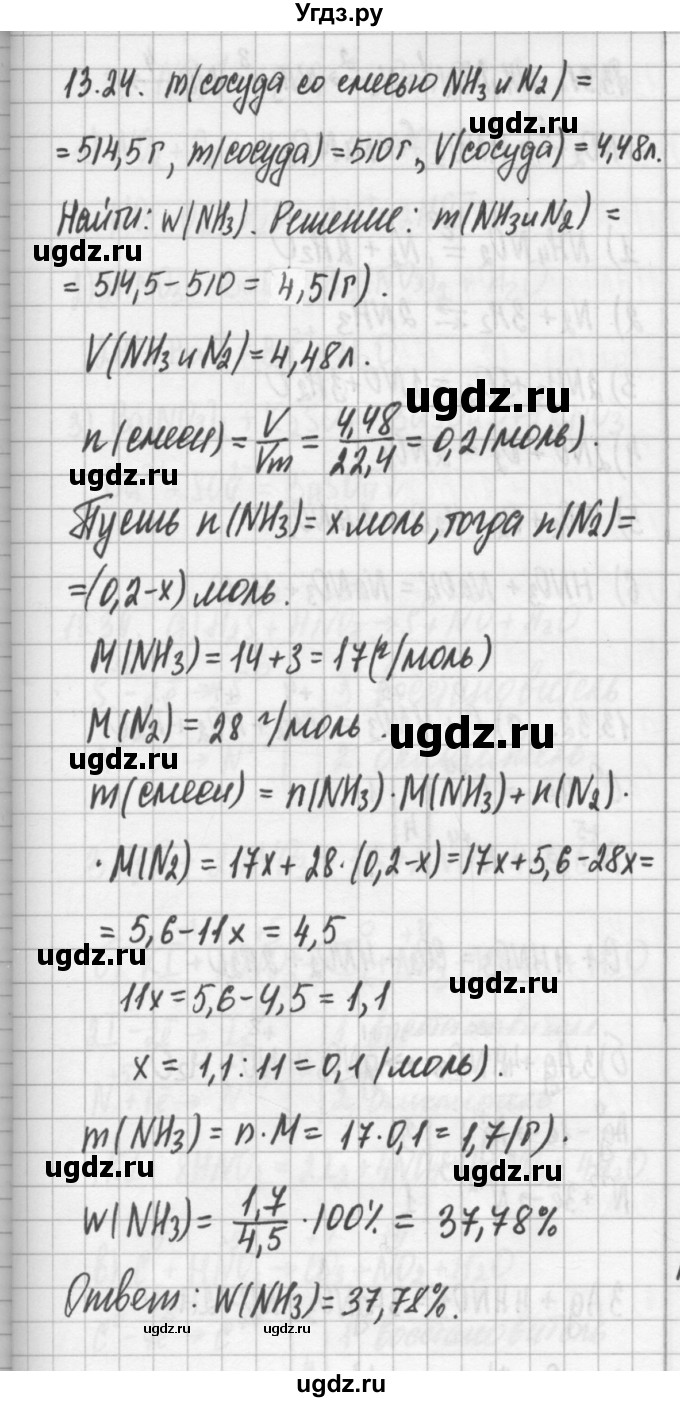 Угдз.ру
13.24. m(сосуда со смесью NH3 и N2) =
ugdz.ru
= 514,5 г, m(сосуда) = 510 г, V(сосуда) = 4,48 л.
Найти: w(NH3). Решение: m(NH3 и N2) =
ugdz.ru
= 514,5 - 510 = 4,5 (г).
V(NH3 и N2) = 4,48 л.
ugdz.ru
n(смеси) = V/Vm = 4,48/22,4 = 0,2 (моль).
ugdz.ru
Пусть n(NH3) = x моль, тогда n(N2) =
= (0,2-x) моль.
M(NH3) = 14+3 = 17 (г/моль)
M(N2) = 28 г/моль.
ugdz.ru
ugdz.ru
m(смеси) = n(NH3)·M(NH3) + n(N2)·
·M(N2) = 17x + 28·(0,2-x) = 17x + 5,6 - 28x =
= 5,6 - 11x = 4,5
ugdz.ru
ugdz.ru
11x = 5,6 - 4,5 = 1,1
x = 1,1 : 11 = 0,1 (моль).
m(NH3) = n·M = 17·0,1 = 1,7 (г).
ugdz.ru
ugdz.ru
w(NH3) = 1,7/4,5 · 100% = 37,78%
Ответ: w(NH3) = 37,78%.
ugdz.ru
ugdz.ru
ugdz.ru